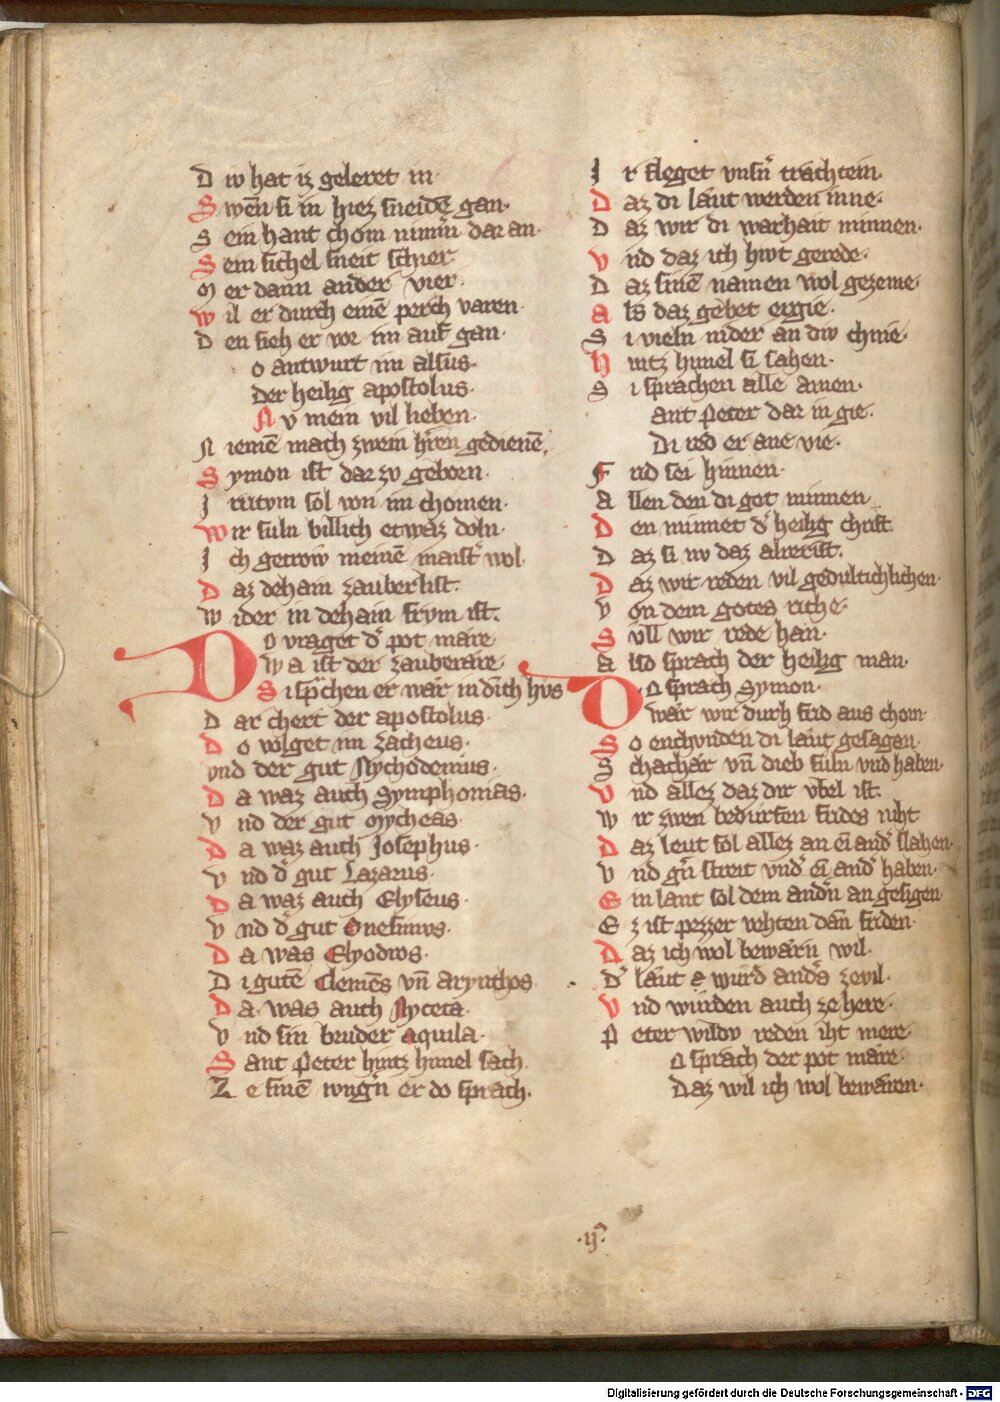 D iv hat iz geleret in·
S wēn si in hiez sneidē gan·
S ein hant chom nim̄ dar an·
S ein sichel sneit schier
M er dann ander vier·
W il er durch einē perch varen·
D en sieh er vor im auf gan·
o antwurt im alsus·
der heilig apostolus·
N v mein vil lieben·
N iemē mach zwein h̄ren gedienē,
S ymon ist dar zv geborn·
I rrtvm sol von im chomen·
W ir suln billich etwaz doln·
I ch getrow meinē maistˀ wol·
D az dehain zauberlist·
W ider in dehain frvm ist.
D o vraget dˀ pot märe·
W a ist der zauberäre·
S i sprachen er wär in dich hvs
D ar chert der apostolus·
D o volget im zacheus·
vnd der gut Nychodemus·
D a waz auch Symphonias·
V nd der gut Mycheas·
D a waz auch Josephus·
V nd dˀ gut Lazarus·
D a waz auch Elyseus·
V nd dˀ gut Onesimvs·
D a was Elyodros·
D i gutē Clemēs vn̄ arynthos·
D a was auch Nyceta·
V nd sin bruder Aquila·
S ant Peter hintz himel sach·
Z e sinē ivngˀn er do sprach.
I r sleget vnsˀn trächtein·
D az di läut werden inne·
D az wir di warhait minnen·
V nd daz ich hivt gerede·
D az sinē namen wol gezeme·
A ls daz gebet ergie·
S i vieln nider an div chnie·
H intz himel si sahen·
S i sprachen alle amen·
ant Peter dar in gie·
Di red er ane vie·
F rid sei hinnen·
A llen den di got minnen·
D en minnet dˀ heilig christ.
D az si nv daz alrerist.
D az wir reden vil gedultichlichen·
V on dem gotes riche·
S vll wir rede han·
A lso sprach der heilig man·
D o sprach Symon·
wär wir durh frid aus chom·
S o enchvnden di läut gesagan·
S chachär vn̄ dieb suln vrid haben·
V nd allez daz dir vbel ist.
W ir zwen bedürfen frides niht
D az leut sol allez an ei andˀ slahen·
V nd gˀn streit vndˀ ei andˀ haben·
E in lant sol dem andˀn an gesigen
E z ist pezzer vehten dan̄ friden·
D az ich wol bewärn wil·
Dˀ läut e wurd andˀs zevil·
V nd würden auch ze here·
P eter wildv reden iht mere·
o sprach der pot märe·
Daz wil ich wol bewären·
·ij·
Digitalisierung gefördert durch die Deutsche Forschungsgemeinschaft - DFG